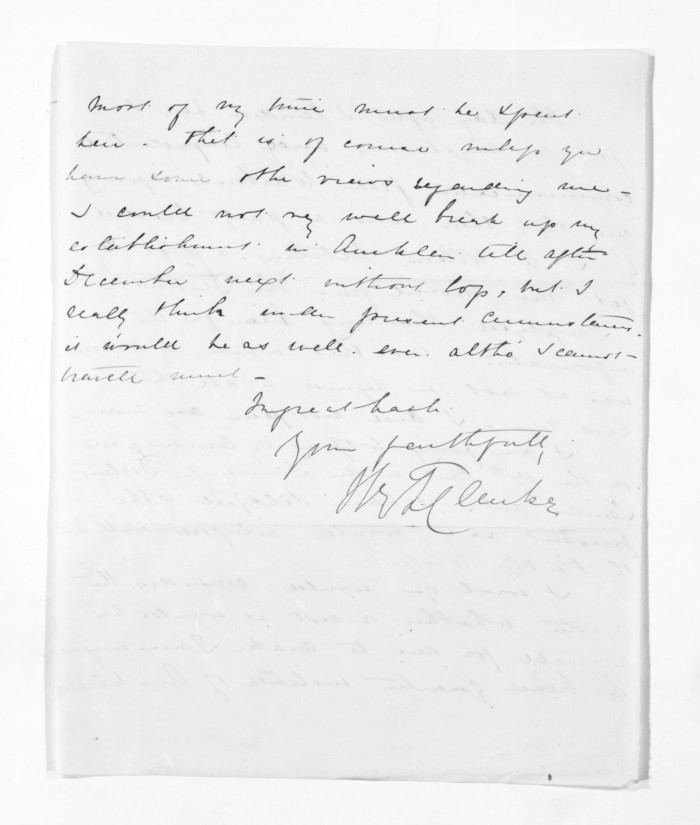 most of my time must be spent
here. That is of course unless you
have some other views regarding me -
I could not very well break up my
establishment in Auckland till after
December next without loss, but I
really think under present circumstances
it would be as well even altho' I cannot
travel much -
In great haste
Yours faithfully
Hy T Clarke